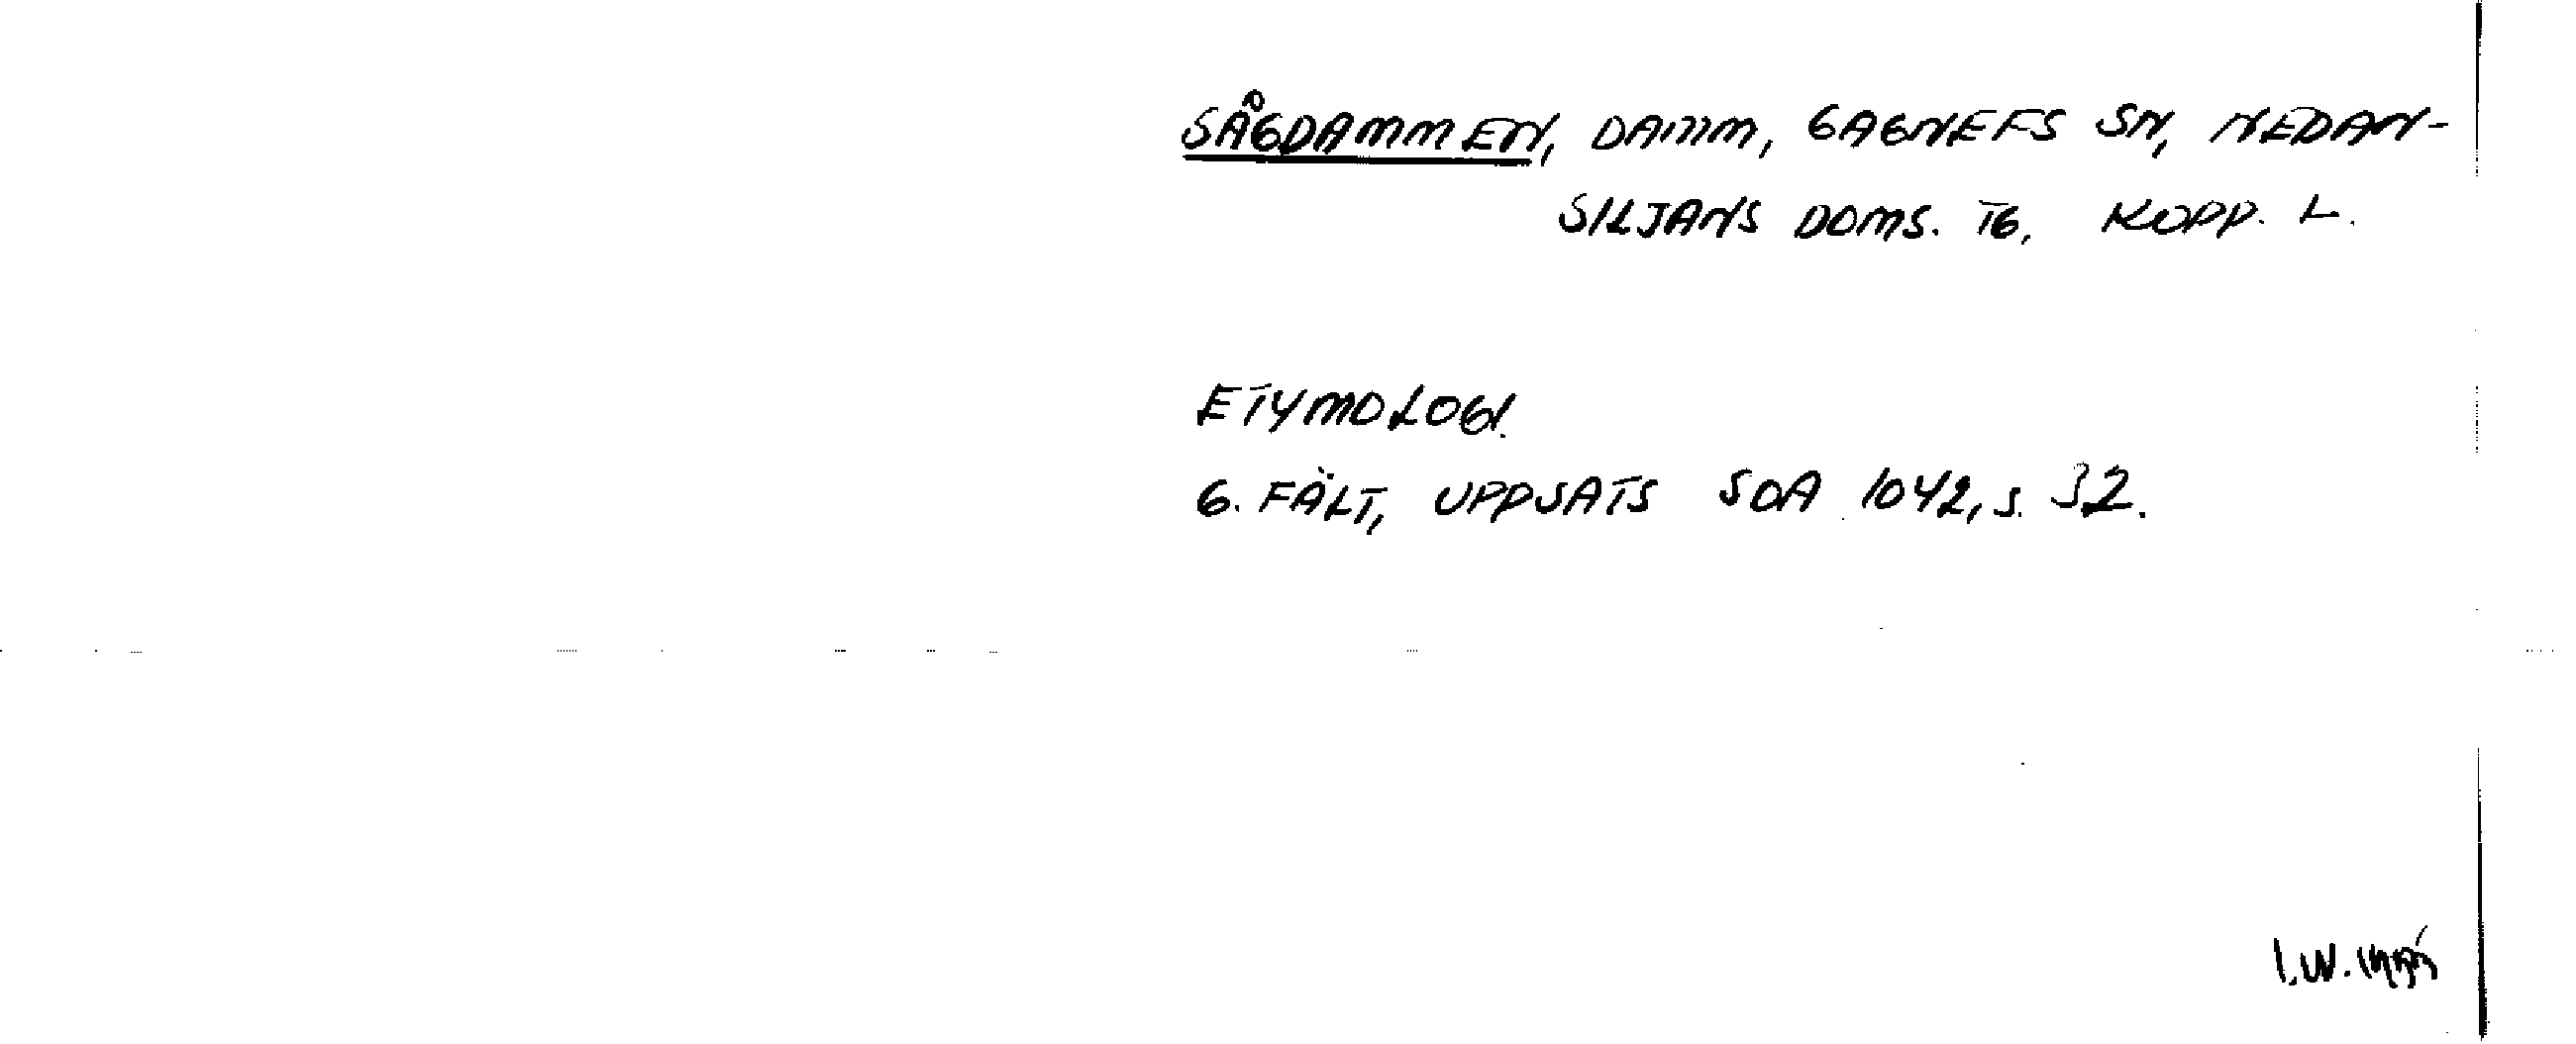 SÅGDAMMEN, DAMM, GAGNEFS SN, NEDAN-
SILJANS DOMS. TG, KOPP. L.
ETYMOLOGI
G. FÄLT, UPPSATS SOA 1042, S. 32.
I.W.